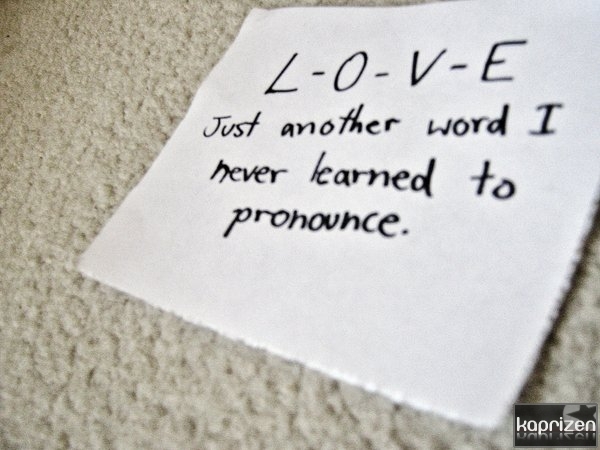 L-O-V-E
Just another word I
never learned to
pronounce.
kaprizen